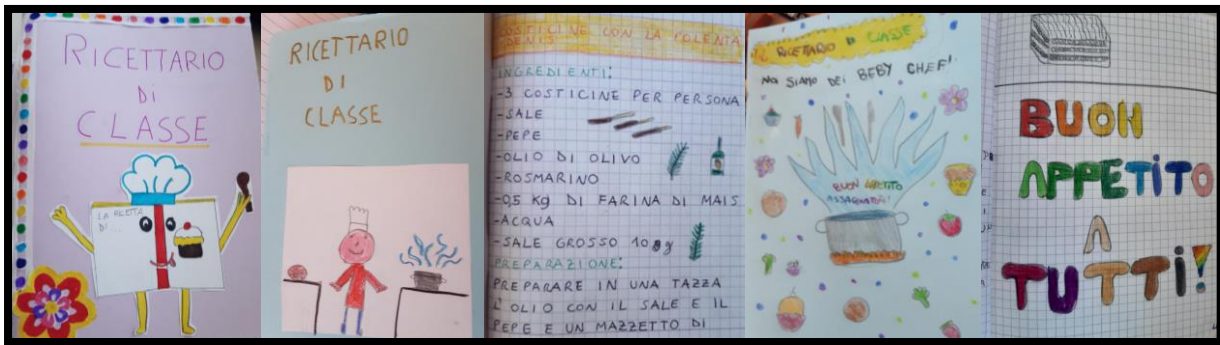 RICETTARIO
Di
CLASSE
LA RICETTA
DI...
RICETTARIO
DI
CLASSE
COSTICINE CON LA POLENTA
DENIS
INGREDIENTI:
-3 COSTICINE PER PERSONA
-SALE
-PEPE
-OLIO DI OLIVO
-ROSMARINO
-0,5 Kg DI FARINA DI MAIS
-ACQUA
-SALE GROSSO 10 g
PREPARAZIONE:
PREPARARE IN UNA TAZZA
L'OLIO CON IL SALE E IL
PEPE E UN MAZZETTO DI
RICETTARIO DI CLASSE
NOI SIAMO DEI BEBY CHEF!
BUON APETITO
ASSAGIATORI!
BUON
APPETITO
A
TUTTi!